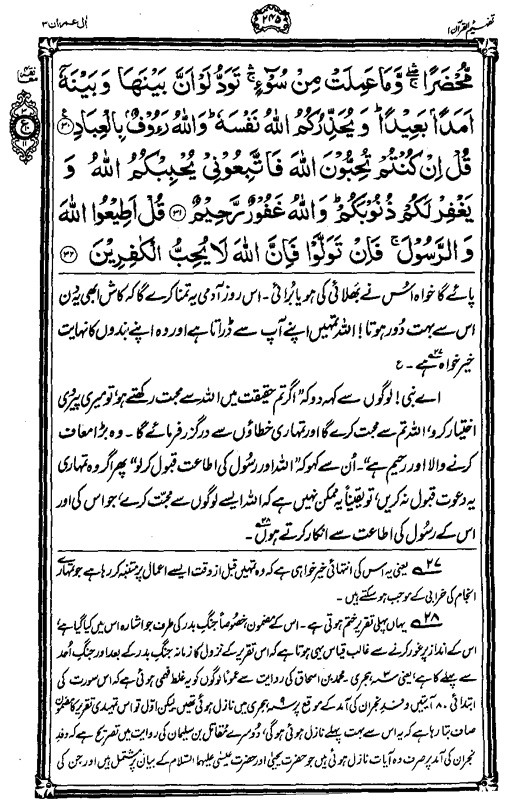 تفہیم القرآن ۱
۲۴۵
اٰل عمرٰن ۳
مُّحْضَرًا ۛۖۚ وَّمَا عَمِلَتْ مِنْ سُوْٓءٍ ۛۚ تَوَدُّ لَوْ اَنَّ بَيْنَهَا وَبَيْنَهٗٓ
اَمَدًۢا بَعِيْدًا ؕ وَيُحَذِّرُكُمُ اللّٰهُ نَفْسَهٗ ؕ وَاللّٰهُ رَءُوْفٌۢ بِالْعِبَادِ ﴿۳۰﴾
قُلْ اِنْ كُنْتُمْ تُحِبُّوْنَ اللّٰهَ فَاتَّبِعُوْنِيْ يُحْبِبْكُمُ اللّٰهُ وَ
يَغْفِرْ لَكُمْ ذُنُوْبَكُمْ ؕ وَاللّٰهُ غَفُوْرٌ رَّحِيْمٌ ﴿۳۱﴾ قُلْ اَطِيْعُوا اللّٰهَ
وَالرَّسُوْلَ ۚ فَاِنْ تَوَلَّوْا فَاِنَّ اللّٰهَ لَا يُحِبُّ الْكٰفِرِيْنَ ﴿۳۲﴾
پائے گا خواہ اُس نے بھلائی کی ہو یا بُرائی۔ اس روز آدمی یہ تمنا کرے گا کہ کاش ابھی یہ دن
اس سے بہت دُور ہوتا! اللہ تمہیں اپنے آپ سے ڈراتا ہے اور وہ اپنے بندوں کا نہایت
خیر خواہ ہے۲۷۔ ع
اے نبی! لوگوں سے کہہ دو کہ "اگر تم حقیقت میں اللہ سے محبت رکھتے ہو، تو میری پیروی
اختیار کرو، اللہ تم سے محبت کرے گا اور تمہاری خطاؤں سے درگزر فرمائے گا۔ وہ بڑا معاف
کرنے والا اور رحیم ہے"۔ اُن سے کہو کہ "اللہ اور رسُول کی اطاعت قبول کر لو" پھر اگر وہ تمہاری
یہ دعوت قبول نہ کریں، تو یقیناً یہ ممکن نہیں ہے کہ اللہ ایسے لوگوں سے محبّت کرے، جو اس کی اور
اس کے رسُول کی اطاعت سے انکار کرتے ہوں۲۸۔
۲۷ یعنی یہ اس کی انتہائی خیر خواہی ہے کہ وہ تمہیں قبل از وقت ایسے اعمال پر متنبہ کر رہا ہے جو تمہارے
انجام کی خرابی کے موجب ہو سکتے ہیں۔
۲۸ یہاں پہلی تقریر ختم ہوتی ہے۔ اس کے مضمون خصُوصاً جنگِ بدر کی طرف جو اشارہ اس میں کیا گیا ہے،
اس کے انداز پر غور کرنے سے غالب قیاس یہی ہوتا ہے کہ اس تقریر کے نزول کا زمانہ جنگِ بدر کے بعد اور جنگِ اُحد
سے پہلے کا ہے، یعنی ۳ ہجری۔ محمد بن اسحاق کی روایت سے عموماً لوگوں کو یہ غلط فہمی ہوئی ہے کہ اس سورت کی
ابتدائی ۸۰ آیتیں وفدِ نجران کی آمد کے موقع پر ۹ ہجری میں نازل ہوئی تھیں لیکن اوّل تو اس تمہیدی تقریر کا مضمُون
صاف بتا رہا ہے کہ یہ اس سے بہت پہلے نازل ہوئی ہوگی، دُوسرے مُقاتل بن سلیمان کی روایت میں تصریح ہے کہ وفدِ
نجران کی آمد پر صرف وہ آیات نازل ہوئی ہیں جو حضرت یحییٰ اور حضرت عیسیٰ علیہما السلام کے بیان پر مشتمل ہیں اور جن کی